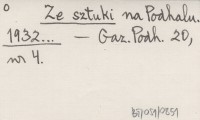 Ze sztuki na Podhalu.
1932... — Gaz. Podh. 20,
nr 4.